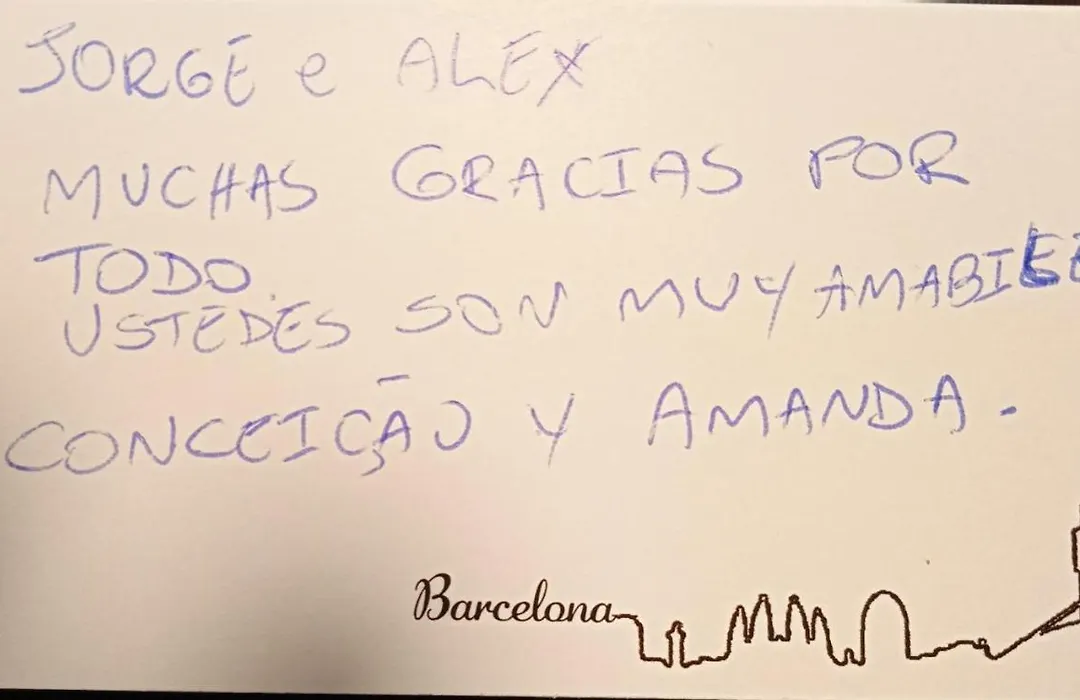 JORGE e ALEX
MUCHAS GRACIAS POR
TODO.
USTEDES SON MUY AMABILE
CONCEIÇÃO Y AMANDA.
Barcelona